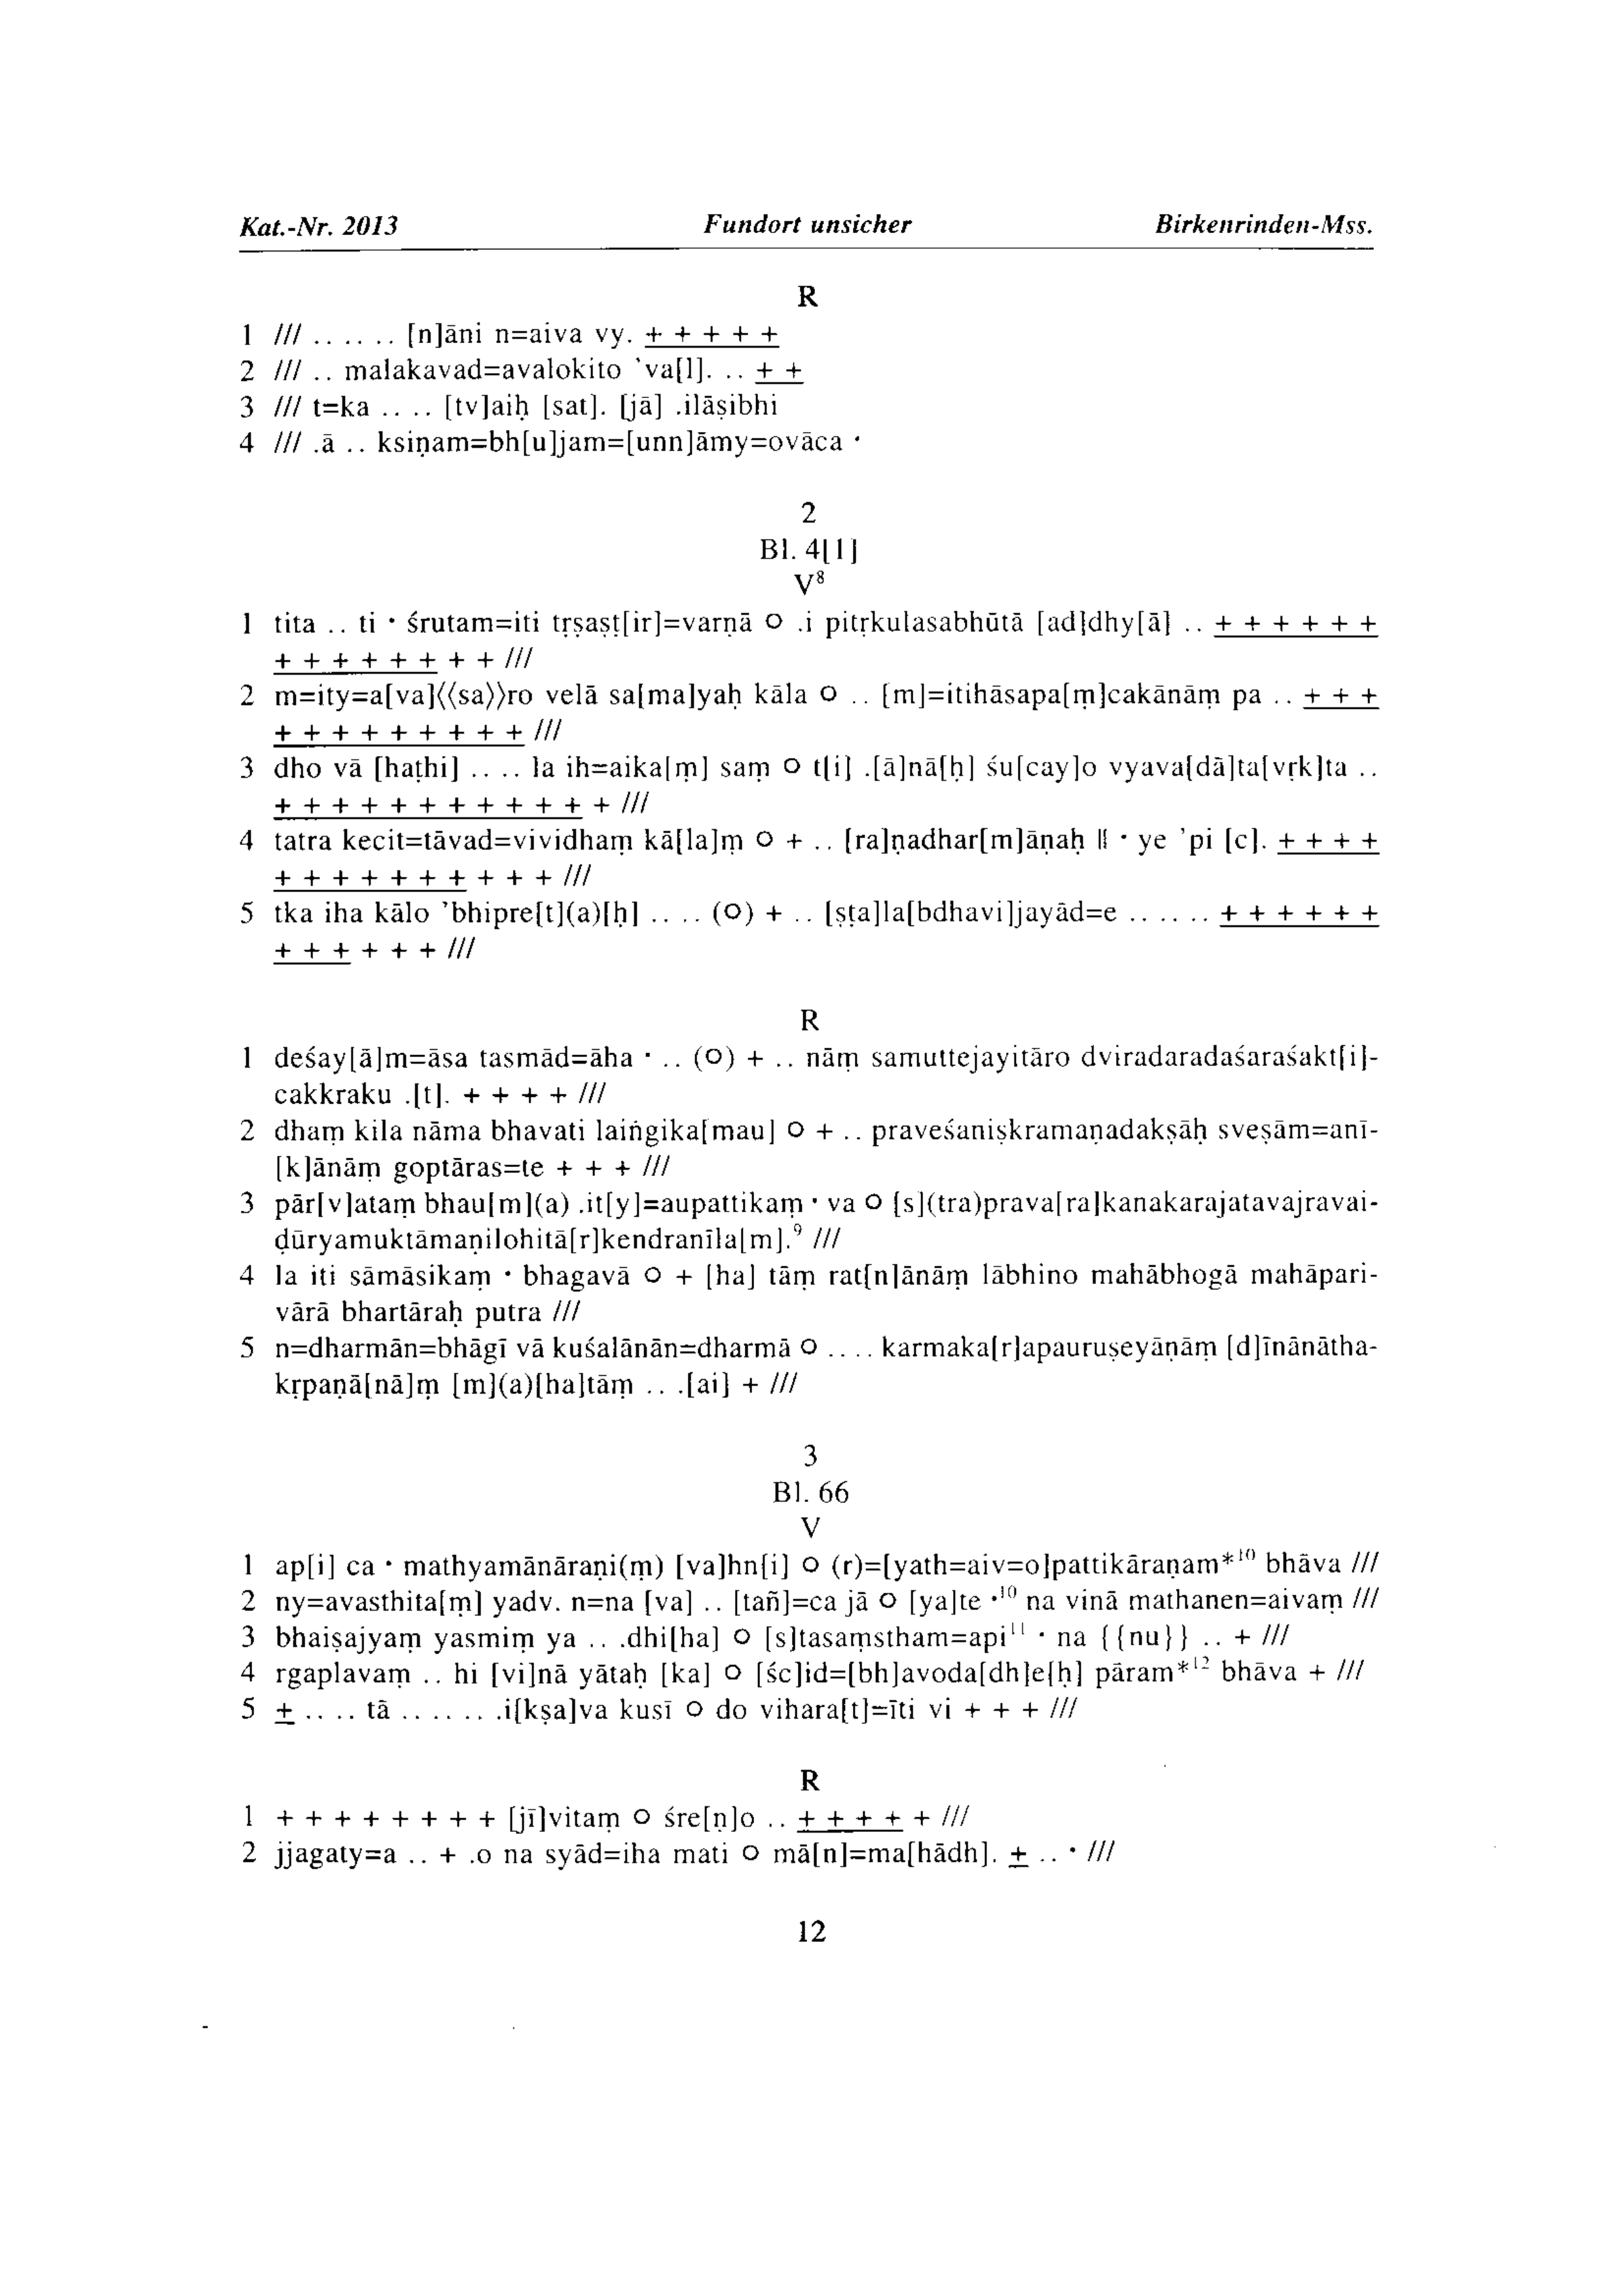 Kat.-Nr. 2013 Fundort unsicher Birkenrinden-Mss.
R
1 /// .. .. .. [n]āni n=aiva vy. + + + + +
2 /// .. malakavad=avalokito ’va[l]. .. + +
3 /// t=ka .. .. [tv]aiḥ [sat]. [jā] .ilāṣibhi
4 /// .ā .. ksiṇam=bh[u]jam=[unn]āmy=ovāca •
2
Bl. 4[1]
V⁸
1 tita .. ti • śrutam=iti tṛṣaṣṭ[ir]=varṇā ○ .i pitṛkulasabhūtā [ad]dhy[ā] .. + + + + + +
+ + + + + + + + ///
2 m=ity=a[va]⟨⟨sa⟩⟩ro velā sa[ma]yaḥ kāla ○ .. [m]=itihāsapa[ṃ]cakānāṃ pa .. + + +
+ + + + + + + + + ///
3 dho vā [haṭhi] .. .. la ih=aika[ṃ] saṃ ○ t[i] .[ā]nā[ḥ] śu[cay]o vyava[dā]ta[vṛk]ta ..
+ + + + + + + + + + + + ///
4 tatra kecit=tāvad=vividhaṃ kā[la]ṃ ○ + .. [ra]ṇadhar[m]āṇaḥ || • ye ’pi [c]. + + + +
+ + + + + + + + + + ///
5 tka iha kālo ’bhipre[t](a)[ḥ] .. .. (○) + .. [ṣṭa]la[bdhavi]jayād=e .. .. .. + + + + + +
+ + + + + + ///
R
1 deśay[ā]m=āsa tasmād=āha • .. (○) + .. nāṃ samuttejayitāro dviradaradaśaraśakt[i]-
cakkraku .[t]. + + + + ///
2 dhaṃ kila nāma bhavati laiṅgika[mau] ○ + .. praveśaniṣkramaṇadakṣāḥ sveṣām=anī-
[k]ānāṃ goptāras=te + + + ///
3 pār[v]ataṃ bhau[m](a) .it[y]=aupattikaṃ • va ○ [s](tra)prava[ra]kanakarajatavajravai-
ḍūryamuktāmaṇilohitā[r]kendranīla[m].⁹ ///
4 la iti sāmāsikaṃ • bhagavā ○ + [ha] tāṃ rat[n]ānāṃ lābhino mahābhogā mahāpari-
vārā bhartāraḥ putra ///
5 n=dharmān=bhāgī vā kuśalānān=dharmā ○ .. .. karmaka[r]apauruṣeyāṇāṃ [d]īnānātha-
kṛpaṇā[nā]ṃ [m](a)[ha]tāṃ .. .[ai] + ///
3
Bl. 66
V
1 ap[i] ca • mathyamānāraṇi(ṃ) [va]hn[i] ○ (r)=[yath=aiv=o]pattikāraṇam*¹⁰ bhāva ///
2 ny=avasthita[ṃ] yadv. n=na [va] .. [tañ]=ca jā ○ [ya]te •¹⁰ na vinā mathanen=aivaṃ ///
3 bhaiṣajyaṃ yasmiṃ ya .. .dhi[ha] ○ [s]tasaṃstham=api¹¹ • na {{nu}} .. + ///
4 rgaplavaṃ .. hi [vi]nā yātaḥ [ka] ○ [śc]id=[bh]avoda[dh]e[ḥ] pāram*¹² bhāva + ///
5 + .. .. tā .. .. .. .i[kṣa]va kusī ○ do vihara[t]=īti vi + + + ///
R
1 + + + + + + + + [jī]vitaṃ ○ śre[ṇ]o .. + + + + + ///
2 jjagaty=a .. + .o na syād=iha mati ○ mā[n]=ma[hādh]. + .. • ///
12